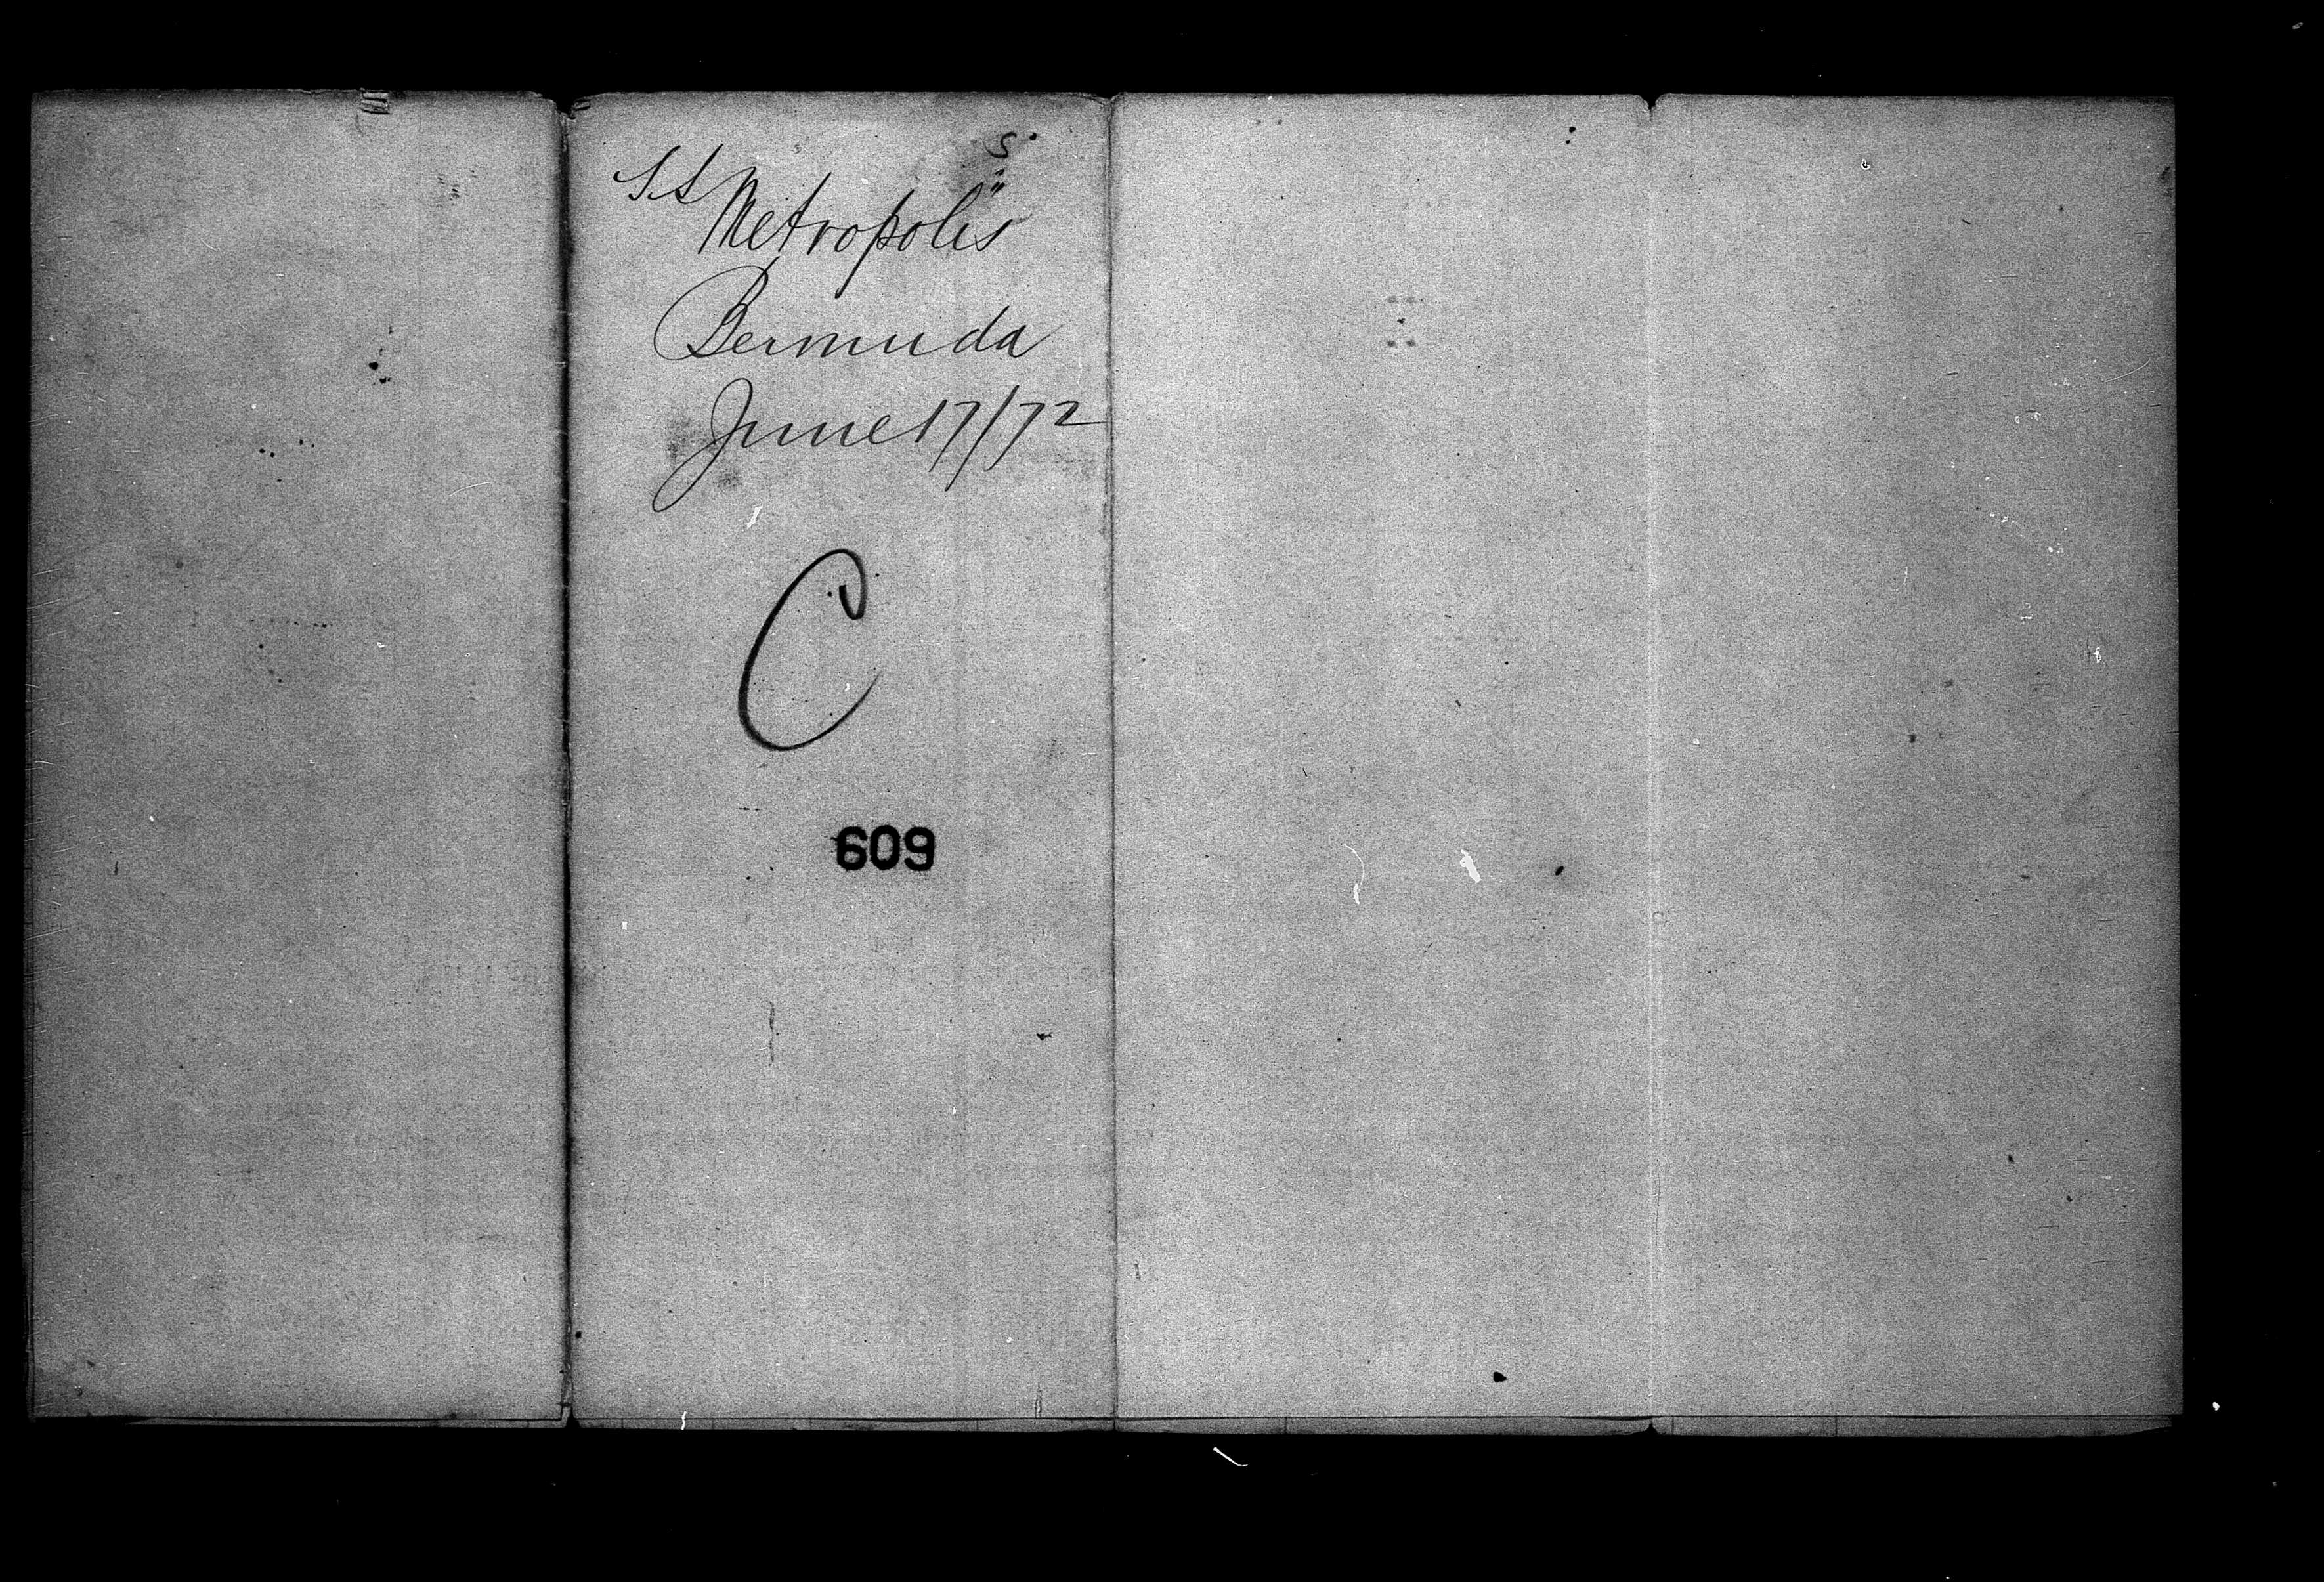 S
SS
Metropolis
Bermuda
June 17/72
C
609